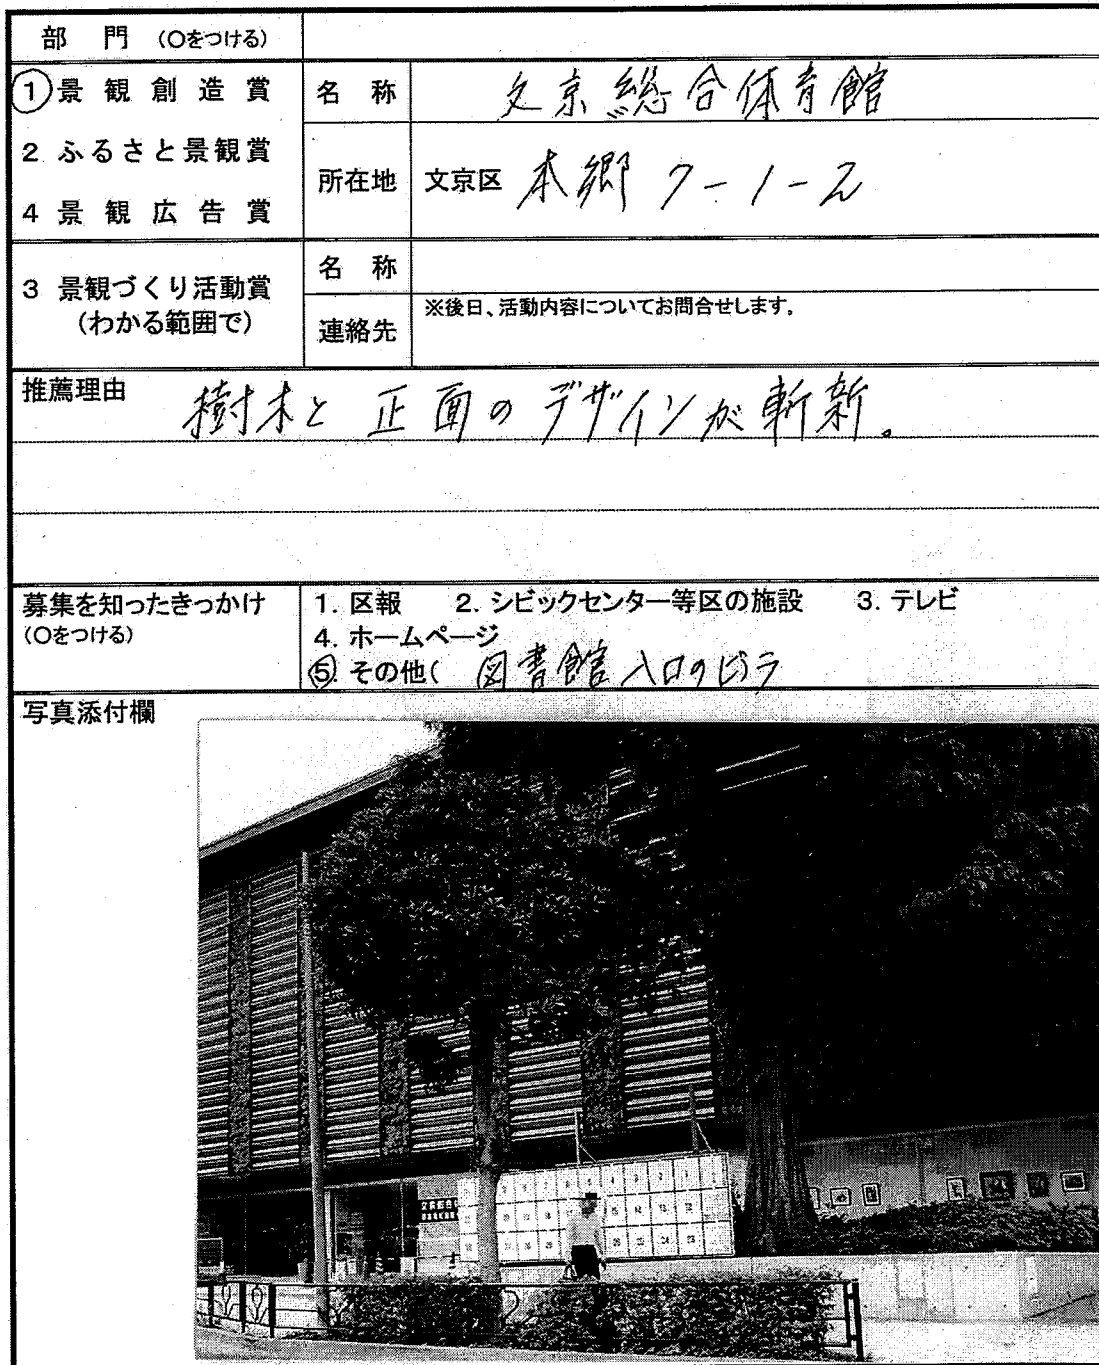 部 門 (○をつける)
1 景観創造賞
名 称 文京総合体育館
2 ふるさと景観賞
所在地 文京区 本郷 7-1-2
4 景観広告賞
3 景観づくり活動賞
(わかる範囲で)
名 称
連絡先 ※後日、活動内容についてお問合せします。
推薦理由 樹木と正面のデザインが斬新。
募集を知ったきっかけ
(○をつける)
1. 区報 2. シビックセンター等区の施設 3. テレビ
4. ホームページ
5. その他( 図書館入口のビラ
写真添付欄